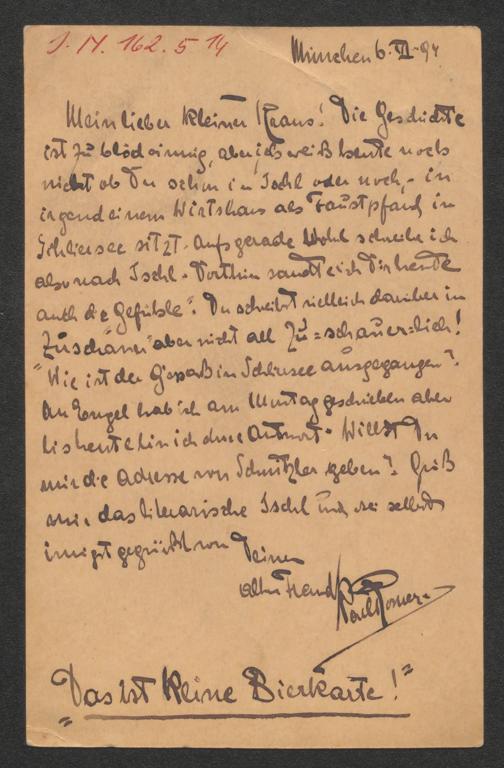 J. N. 162.514
München 6. VI. 94
Mein lieber kleiner Kraus! Die Geschichte
ist zu blödsinnig, aber ich weiß heute noch
nicht ob Du schon in Ischl oder noch, - in
irgend einem Wirtshaus als Faustpfand in
Schliersee sitzt. Aufs gerade Wohl schreibe ich
also nach Ischl. Dorthin sandte ich Dir heute
auch die „Gefühle“. Du schreibst vielleicht darüber in
„Zuschauer“ aber nicht all zu = schauer = lich!
Wie ist der G'spaß in Schliersee ausgegangen?
An Engel hab ich am Montag geschrieben aber
bis heute bin ich ohne Antwort. Willst Du
mir die Adresse von Schnitzler geben? Grüß
mir das literarische Ischl und sei selbst
innigst gegrüßt von Deinem
alten Freund
Karl Rosner
„Das ist keine Bierkarte!“